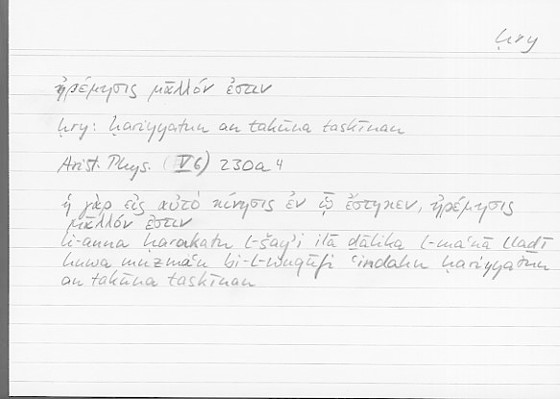 ḥry
ἠρέμησις μᾶλλόν ἐστιν
ḥry: ḥariyyatun an takūna taskīnan
Arist. Phys. (V 6) 230a 4
ἡ γὰρ εἰς αὐτὸ κίνησις ἐν ᾧ ἕστηκεν, ἠρέμησις
μᾶλλόν ἐστιν
li-anna ḥarakata l-šayʾi ilā ḏālika l-maʿnā llaḏī
huwa muzmaʿun bi-l-wuqūfi ʿindahu ḥariyyatun
an takūna taskīnan